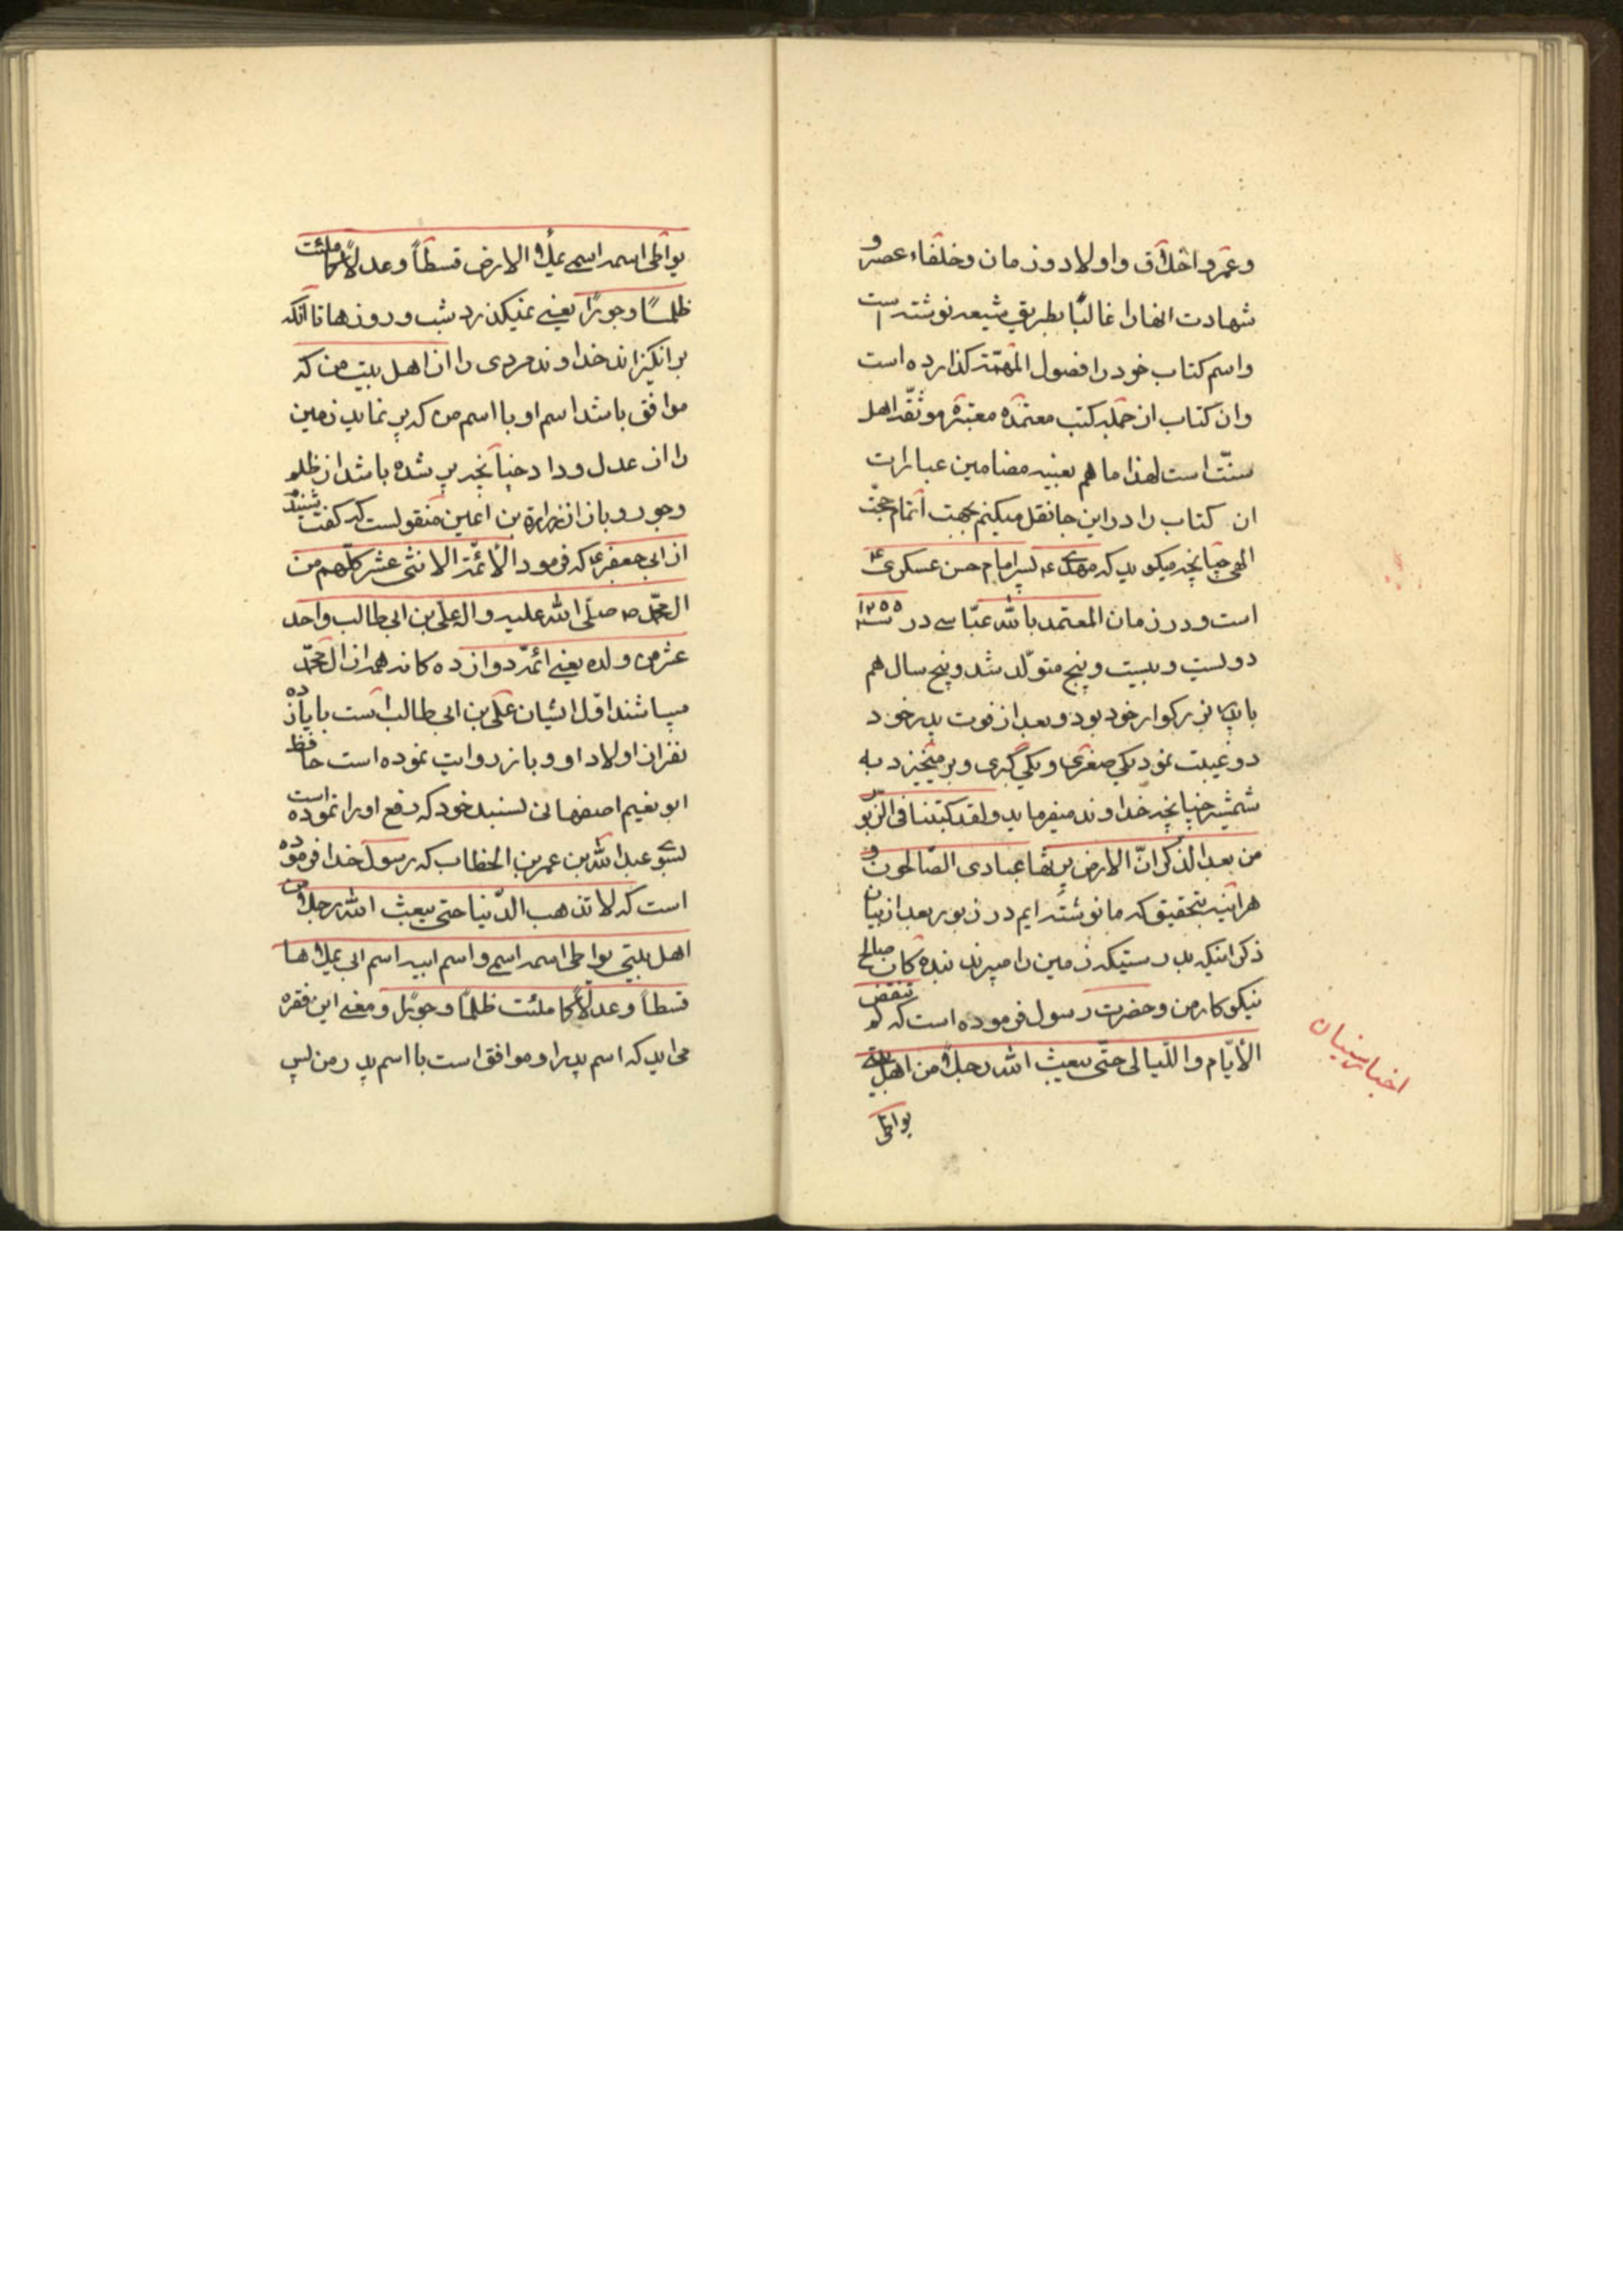 وعمر و اخلاق و اولاد و زمان و خلفاء عصر و
شهادت انها را غالبًا بطریق شیعه نوشته است
و اسم کتاب خود را فصول المهمّة گذارده است
و ان کتاب از جمله کتب معتمده معتبره موثّقه اهل
سنّت است لهذا ما هم بعینه مضامین عبارات
ان کتاب را در این جا نقل میکنیم بجهت اتمام حجّت
الهی چنانچه میکوید که مهدی ع پسر امام حسن عسکری ع
است و در زمان المعتمد بالله عبّاسی در سنه ۱۲۵۵
دولیست و بیست و پنج متولّد شد و پنج سال هم
با پدر بزرکوار خود بود و بعد از فوت پدر خود
دو غیبت نمود یکی صغری و یکی کبری و بر میخیزد به
شمشیر چنانچه خداوند میفرماید ولقد کتبنا فی الزّبور
من بعد الذّکر انّ الارض یرثها عبادی الصّالحون و
هر اینه بتحقیق که ما نوشته ایم در زبور بعد از بیان
ذکر اینکه بدرستیکه زمین را میبرند بنده کان صالح
نیکو کار من و حضرت رسول فرموده است که لم تنقض
الأیّام واللّیالی حتّی یبعث الله رجلاً من اهل بیتی
یواطی
اخبار سنیان
یواطی اسمه اسمی یملأ الارض قسطاً وعدلاً کما ملئت
ظلماً وجوراً یعنی نمیکذرد شب و روزها تا انکه
بر انکیزاند خداوند مردی را از اهل بیت من که
موافق باشد اسم او با اسم من که پر نماید زمین
را از عدل و داد چنانچه پر شده باشد از ظلم
وجور و باز از زرارة بن اعین منقولست که کفت شنیدم
از ابی جعفر ع که فرمود الأئمّة الاثنی عشر کلّهم من
ال محمّد ص صلّی الله علیه واله علی بن ابی طالب واحد
عشر من ولده یعنی ائمّه دوازده کانه همه از ال محمّد
میباشند اوّل ایشان علی بن ابی طالب است با یازده
نفر از اولاد او و باز روایت نموده است حافظ
ابو نعیم اصفهانی بسند خود که رفع او را نموده است
بسوی عبد الله بن عمر بن الخطاب که رسول خدا فرموده
است که لا تذهب الدّنیا حتی یبعث الله رجلاً من
اهل بیتی یواطی اسمه اسمی و اسم ابیه اسم ابی یملأها
قسطاً وعدلاً کما ملئت ظلمًا وجورًا و معنی این فقره
می اید که اسم پدر او موافق است با اسم پدر من پس